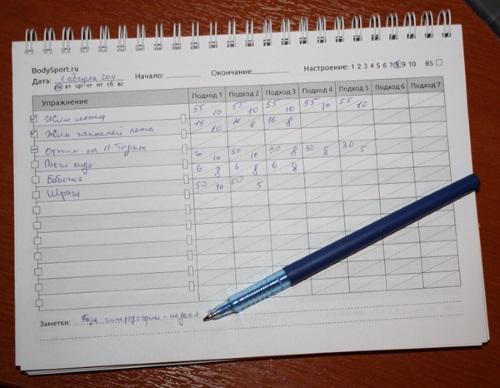 BodySport.ru
Дата: 1 августа 2011 Начало: Окончание: Настроение: 1 2 3 4 5 6 7 8 9 10 Б5
пн вт ср чт пт сб вс
Упражнение Подход 1 Подход 2 Подход 3 Подход 4 Подход 5 Подход 6 Подход 7
Жим лежа 55 10 55 10 55 10 55 10 55 10
Жим гантелей лежа 16 10 16 8 16 8
Отжим на
сидя 30 10 30 10 30 8 30 8 30 5
Бабочка 6 8 6 8 6 8
Шраги 50 10 50 5
Заметки: Фаза гипертрофии - неделя